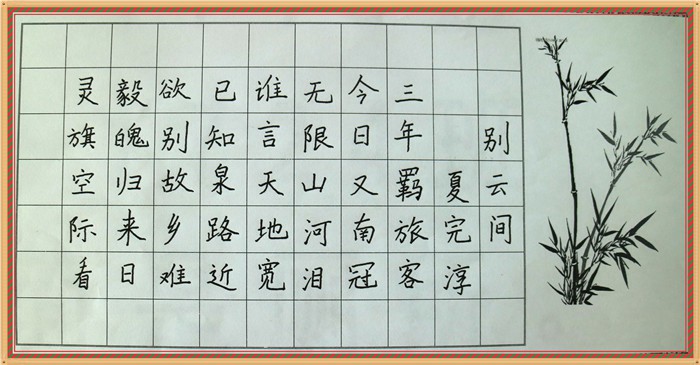 别云间
夏完淳
三年羁旅客
今日又南冠
无限山河泪
谁言天地宽
已知泉路近
欲别故乡难
毅魄归来日
灵旗空际看